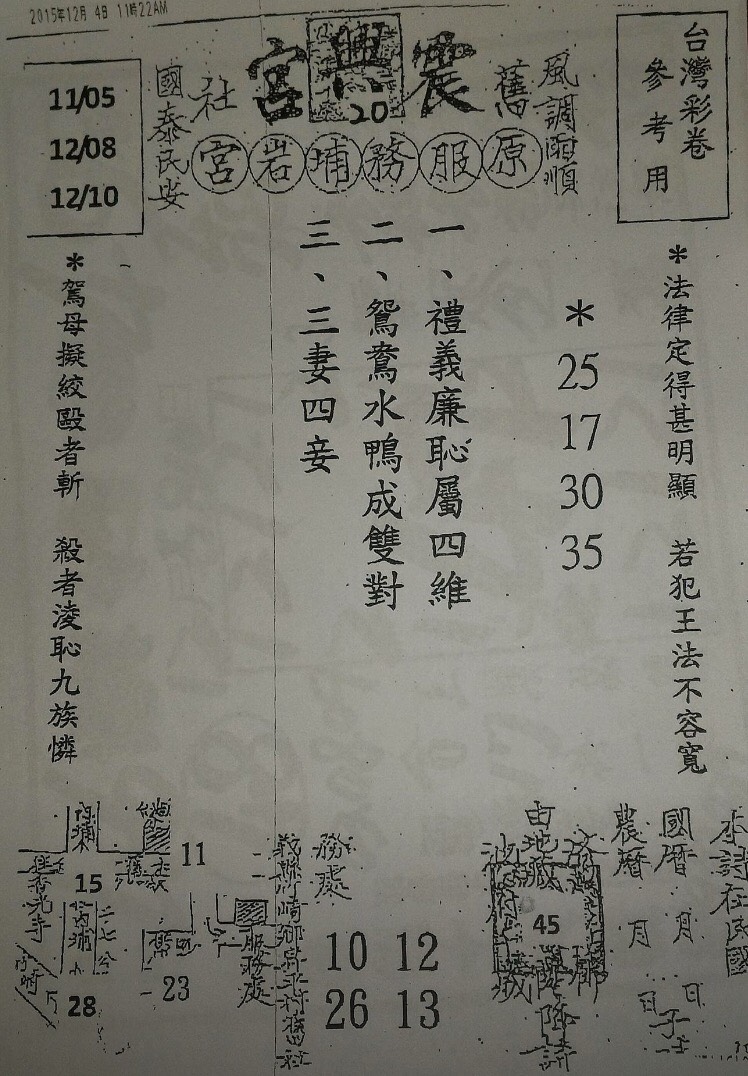 2015年12月 4日 11時22AM
台灣彩卷
參考用
風調雨順
舊
震興宮
20
社
國泰民安
原服務埔岩宮
11/05
12/08
12/10
*法律定得甚明顯 若犯王法不容寬
*
25
17
30
35
一、禮義廉恥屬四維
二、鴛鴦水鴨成雙對
三、三妻四妾
*駕母擬絞毆者斬 殺者淩恥九族憐
本詩在民國
國曆 月 日
農曆 月 日子
由地藏
45
降詩
務處
10 12
26 13
服務處
11
內埔
15
23
28